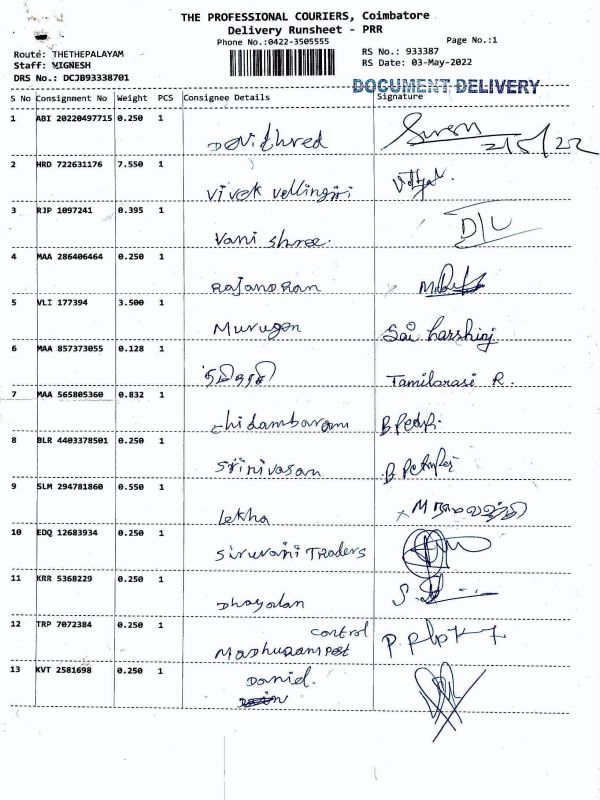 THE PROFESSIONAL COURIERS, Coimbatore
Delivery Runsheet - PRR
Phone No.:0422-3505555
Page No.:1
Route: THETHEPALAYAM
RS No.: 933387
Staff: VIGNESH
RS Date: 03-May-2022
DRS No.: DCJB93338701
DOCUMENT DELIVERY
S No Consignment No Weight PCS Consignee Details Signature
1 ABI 20220497715 0.250 1
2 HRD 722631176 7.550 1 Vivek Vellingiri
3 RJP 1097241 0.395 1 Vani Shree.
4 MAA 286406464 0.250 1
5 VLI 177394 3.500 1 Murugan Sai harshini
6 MAA 857373055 0.128 1 Tamilarasi R.
7 MAA 565805360 0.832 1 chidambaram
8 BLR 4403378501 0.250 1 Srinivasan
9 SLM 294781860 0.550 1 Lekha
10 EDQ 12683934 0.250 1 Siruvani Traders
11 KRR 5368229 0.250 1 Dhayalan
12 TRP 7072384 0.250 1 control
13 KVT 2581698 0.250 1 Daniel.